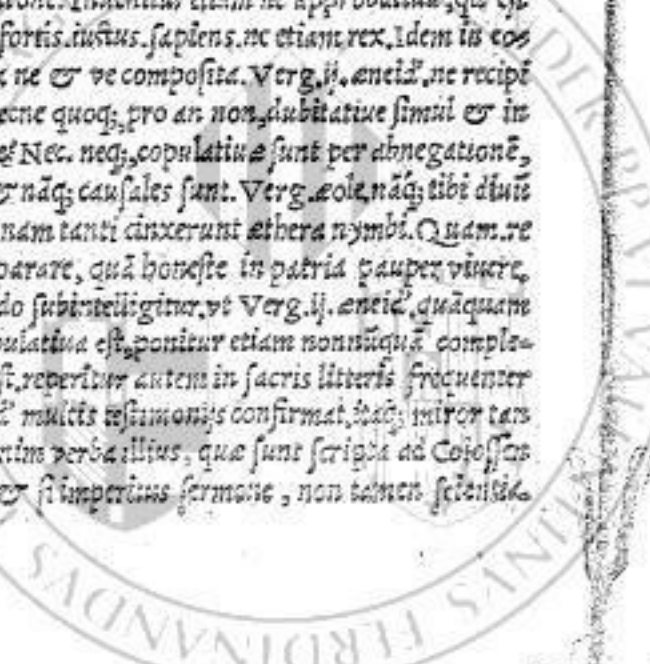 fortis.iustus.sapiens.nc etiam rex.Idem iis
ne & ve composita.Verg.ij.æneid.ne recipi
ecne quoq;,pro an non,dubitatiue simul & in
Nec. neq;,copulatiuæ sunt per abnegationē,
nāq; causales sunt. Verg.æole,nāq; tibi diuū
nam tanti cinxerunt æthera nymbi.Quam.re
parare, quā honeste in patria pauper viuere.
do subintelligitur,vt Verg.ij.æneid.quāquam
pulatiua est,ponitur etiam nonnūquā comple-
st.reperitur autem in sacris litteris frequenter
multis testimonijs confirmat,itaq; miror tam
nim verba illius, quæ sunt scripta ad Colossen
& si imperitus sermone, non tamen scientia.